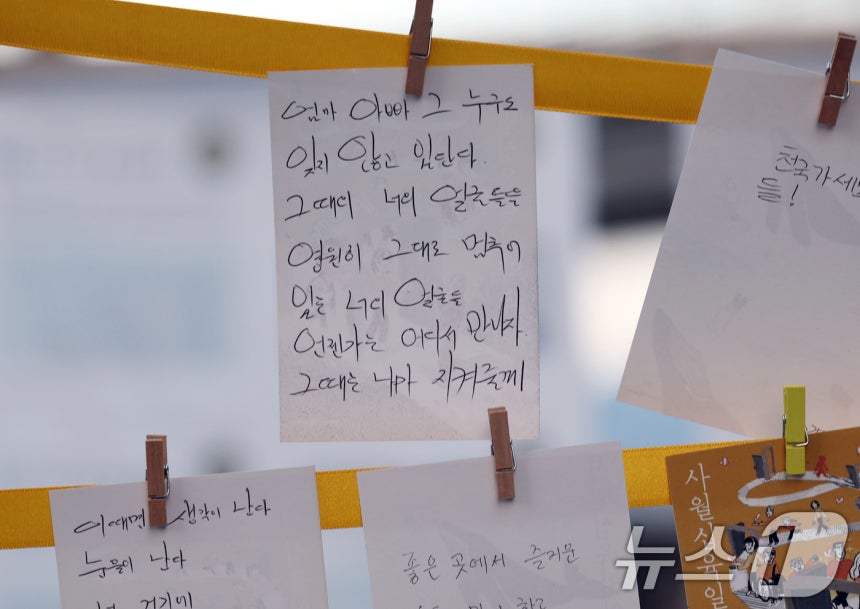 엄마 아빠 그 누구도
잊지 않고 있단다.
그때의 너의 얼굴들을
영원히 그대로 멈추어
있는 너의 얼굴들
언젠가는 어디서 만나자.
그때는 내가 지켜줄께
천국가세
들!
이때면 생각이 난다
눈물이 난다
거기에
좋은 곳에서 즐거운
사월십육일
뉴스1